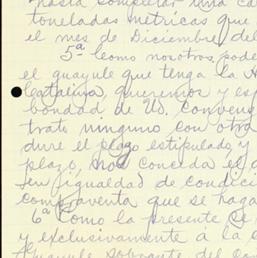 hasta completar una ca
toneladas métricas que
el mes de Diciembre del
5ª Como nosotros pode
el guayule que tenga la H
Catalina, queremos y esp
bondad de Ud. convenga
trato ninguno con otra
dure el plazo estipulado, y
plazo, nos conceda el d
en igualdad de condicio
compraventa que se haga
6ª Como la presente se
y exclusivamente á la
Guayule sobrante del con